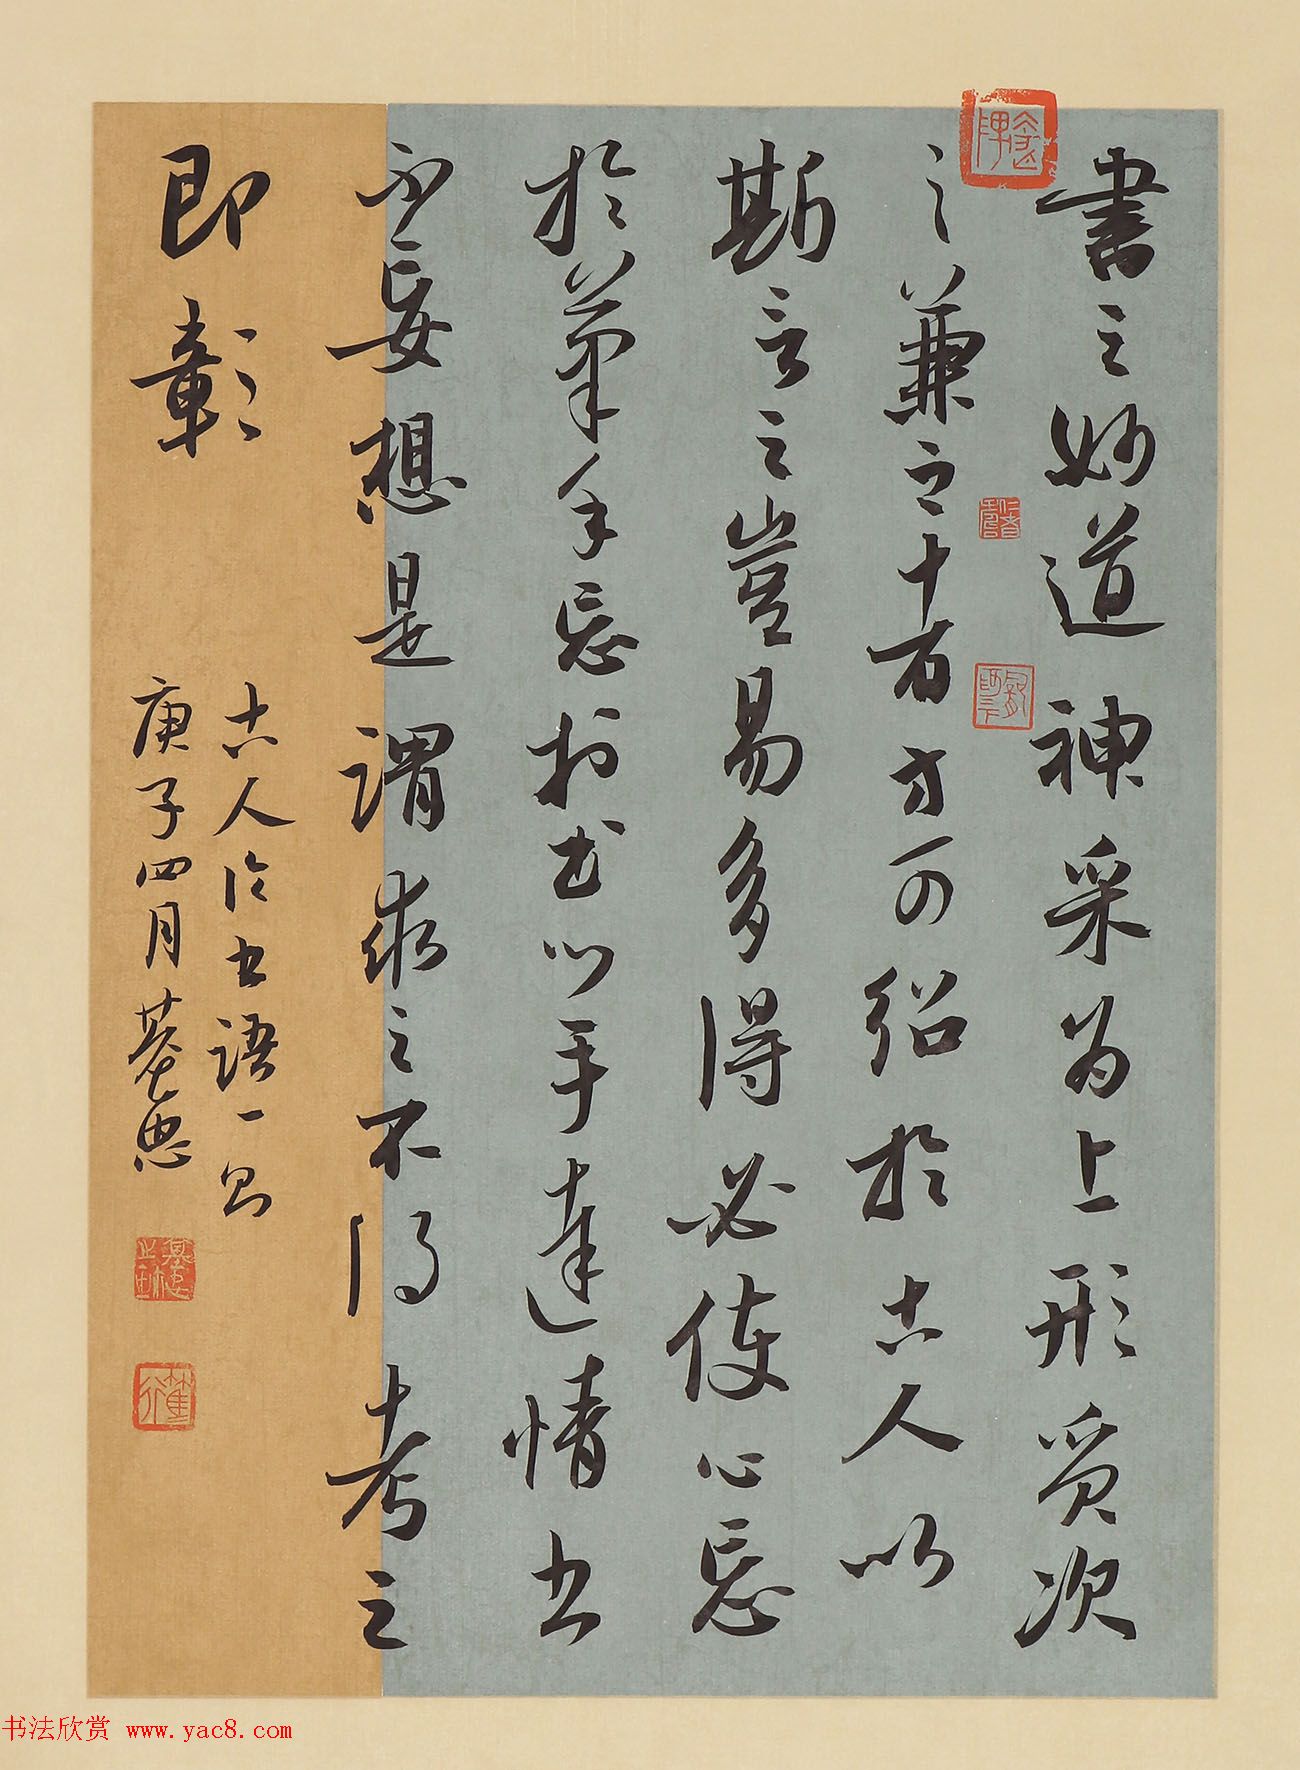 書之妙道神采为上形质次
之兼之者方可绍於古人以
斯言之豈易多得必使心忘
於筆手忘於书心手達情书
不妄想是謂求之不得考之
即彰
古人论书语一则
庚子四月
书法欣赏 www.yac8.com